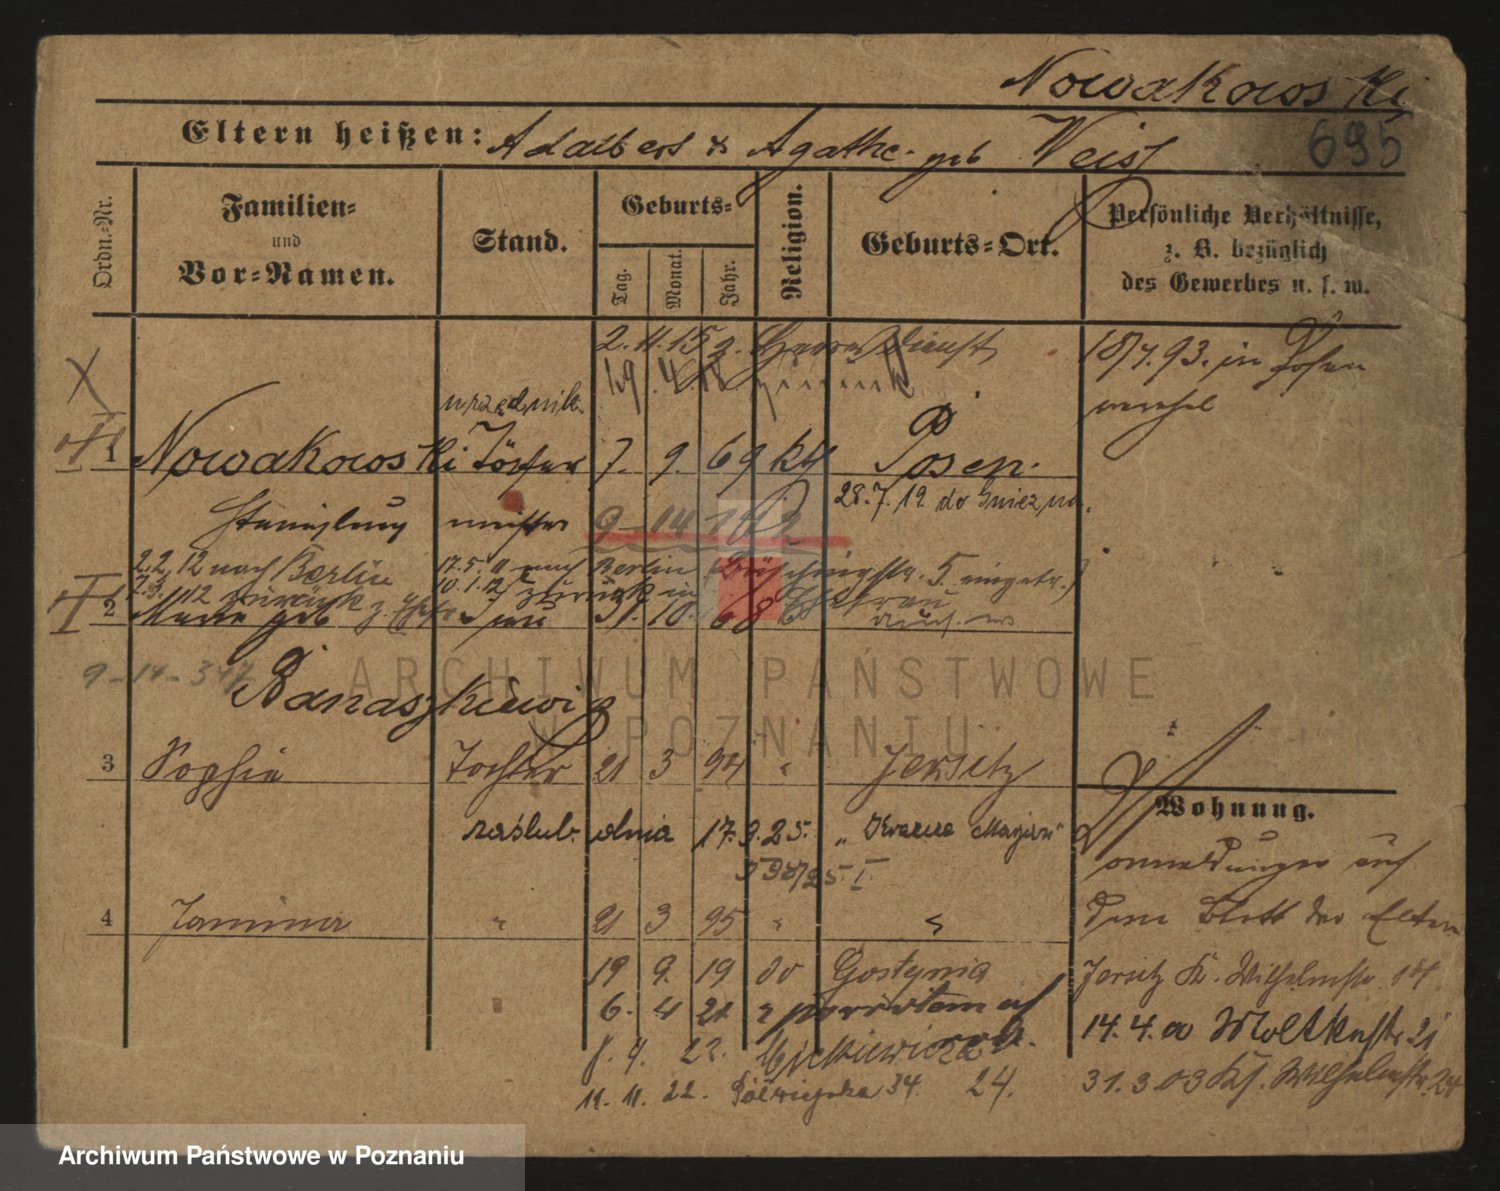 Nowakowski
695
Eltern heißen: Adalbert & Agathe geb Weiß
Ordn.-Nr.
Familien-
und
Vor-Namen.
Stand.
Geburts-
Tag.
Monat.
Jahr.
Religion.
Geburts-Ort.
Persönliche Verhältnisse,
z. B. bezüglich
des Gewerbes u. s. w.
2. 11. 15 z. Heeresdienst
19 4 18
18/7. 93. in Posen
urzędnik.
1 Nowakowski Töpfer 7. 9. 69 kth Posen.
28. 7. 19 do Gniezna.
Stanislaus meister 9-14 172
2.2.12 nach Berlin 17.5.11 nach Berlin 5. eingetr.)
7.3.12 zurück z. Ehefr. 10.1.12 zurück in Ehefrau
2 Marie geb 31. 10. 68
9-14-347
Banaszkiewicz
3 Sophia Tochter 21 3 94 " Jersitz
zaślub. dnia 17.9.25. "
Wohnung.
4 Janina " 21 3 95 " "
Anmeldungen auf
dem Blatt der Eltern
19 9. 19 do Gostynia
Jersitz K. Wilhelmstr. 14.
6. 4 21 z powrotem
14.4.00 Moltkestr 21
8. 4. 22. Mickiewicza
24.
31.3.03 Ks. Wilhelmstr. 24
11. 11. 22. Półwiejska 34.
ARCHIWUM PAŃSTWOWE
W POZNANIU
Archiwum Państwowe w Poznaniu